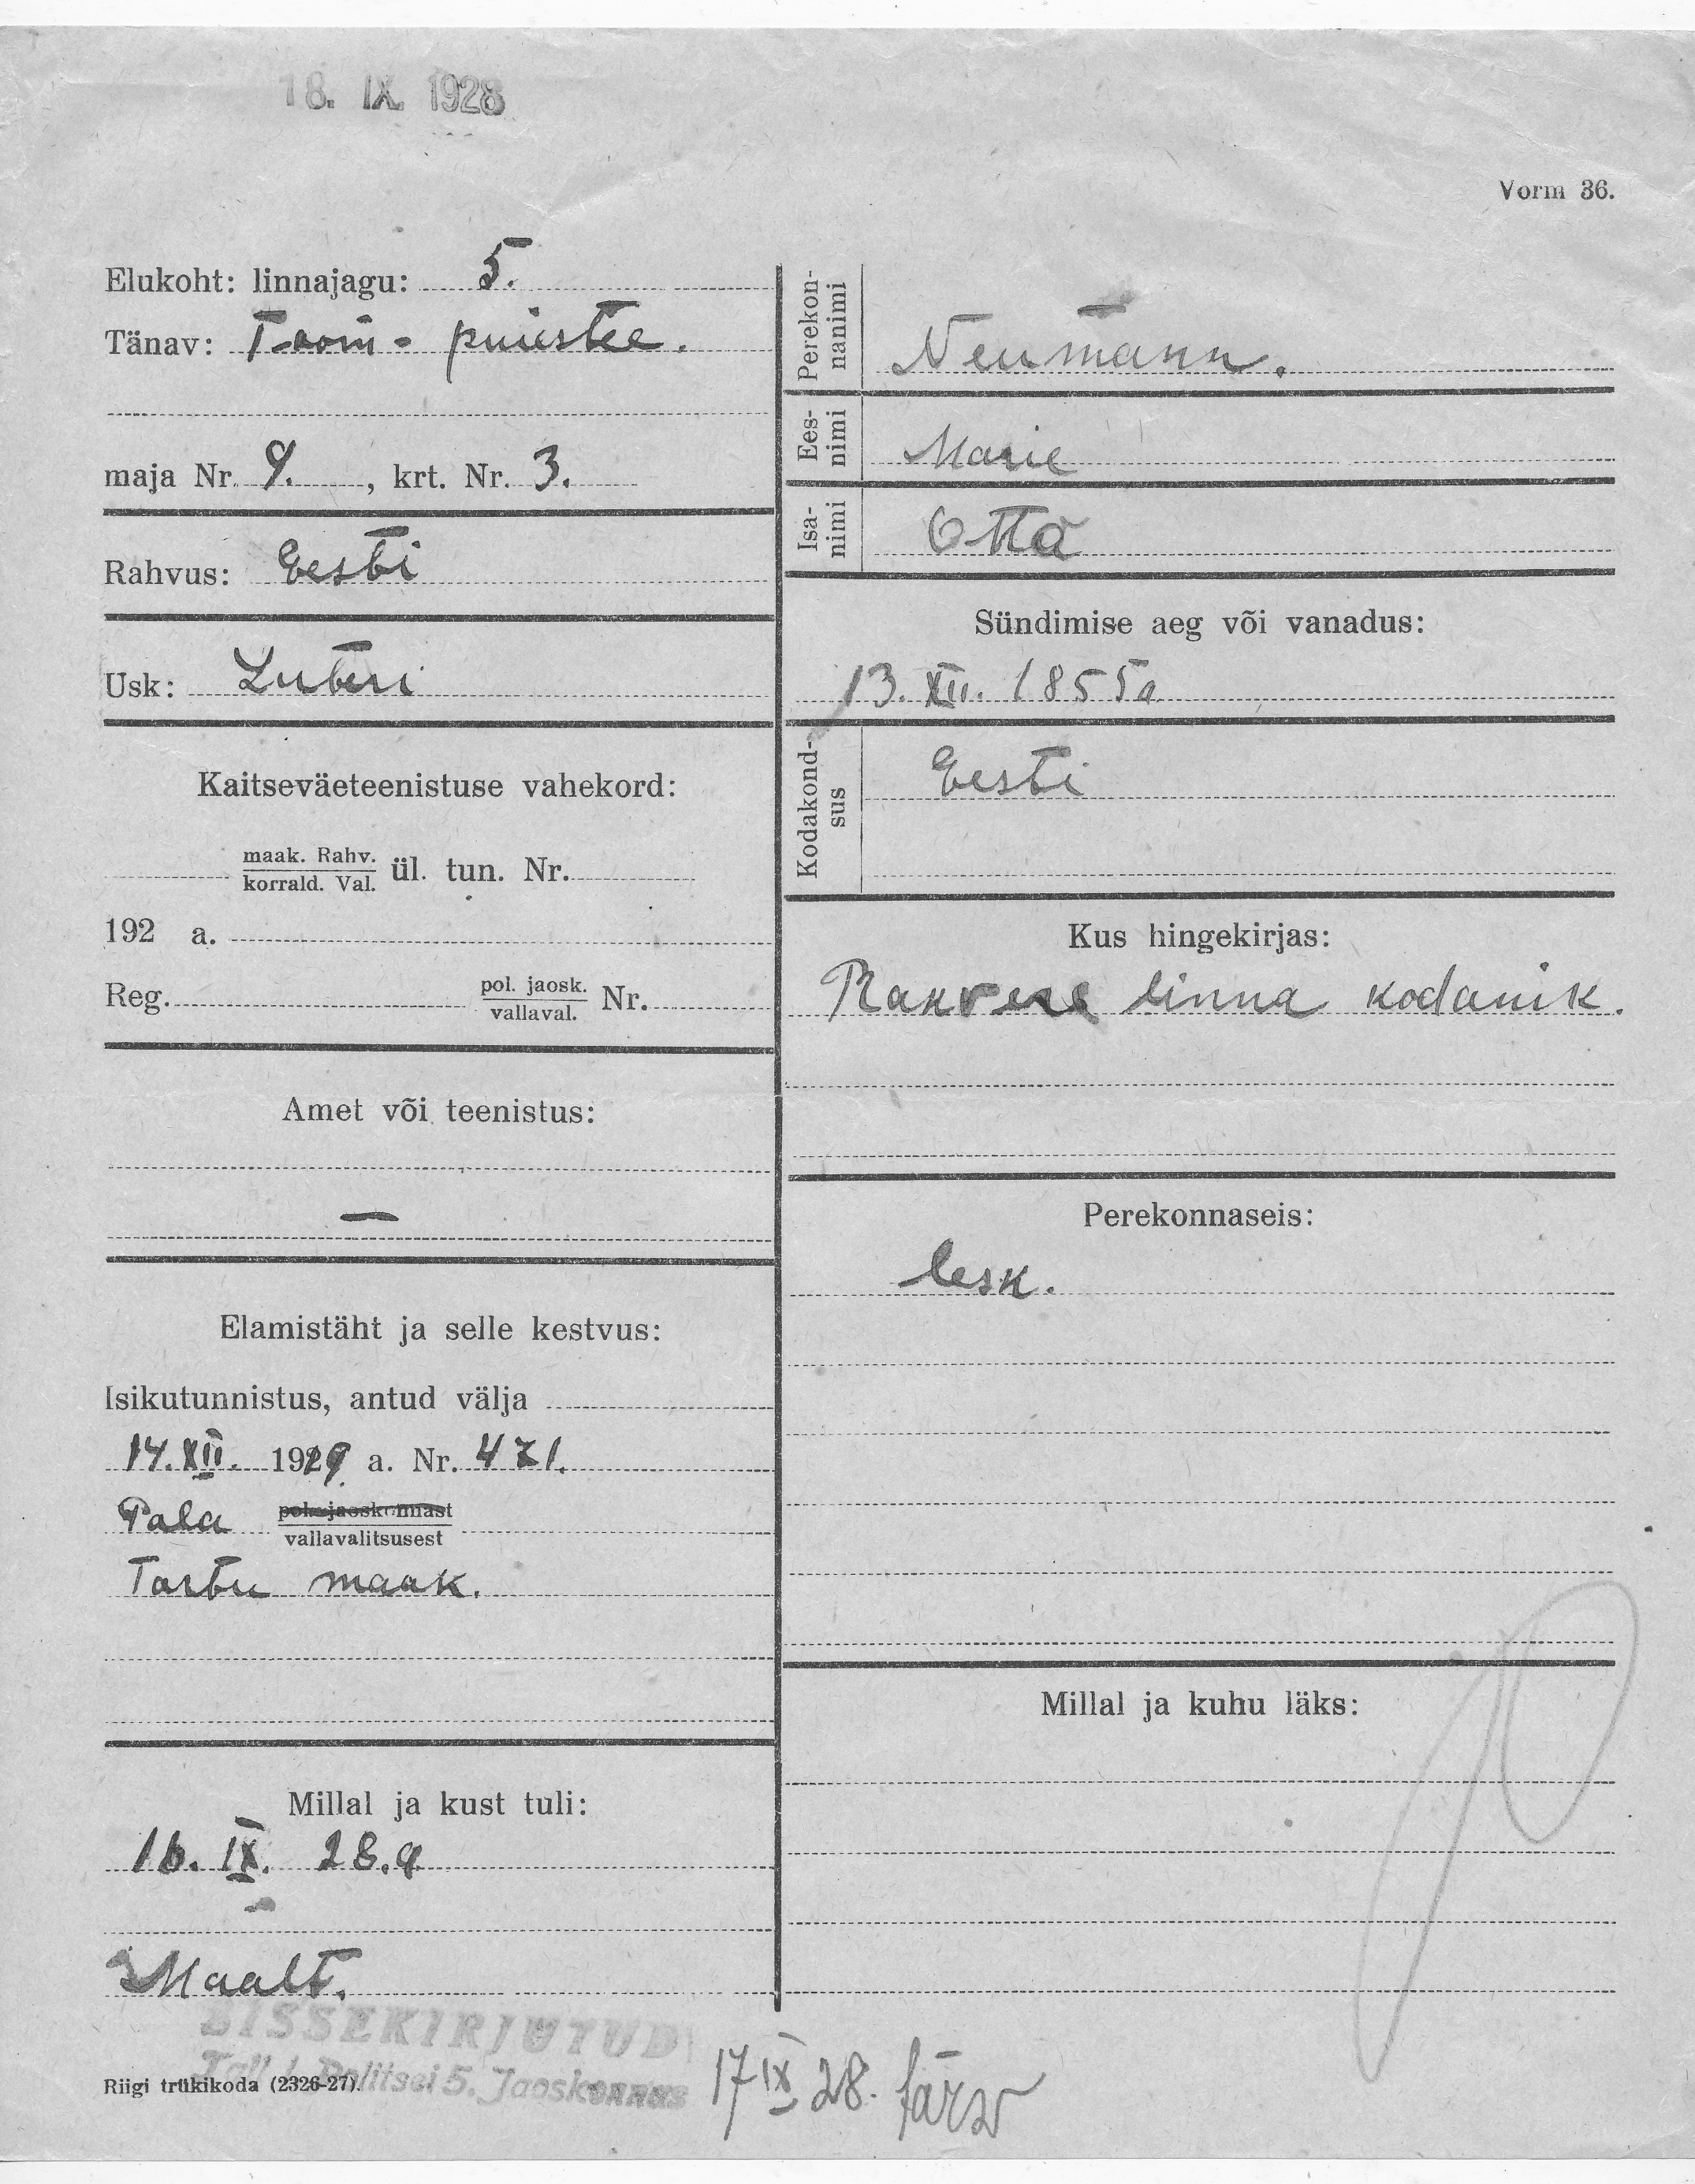 18. IX. 1928
Vorm 36.
Elukoht: linnajagu: 5.
Tänav: Toom-puiestee.
maja Nr. 9., krt. Nr. 3.
Rahvus: Eesti
Usk: Luteri
Kaitseväeteenistuse vahekord:
maak. Rahv.
korrald. Val. ül. tun. Nr.
192 a.
Reg. pol. jaosk.
vallaval. Nr.
Amet või teenistus:
—
Elamistäht ja selle kestvus:
Isikutunnistus, antud välja
14. XII. 1919 a. Nr. 471.
Pala pol. jaoskonnast
vallavalitsusest
Tartu maak.
Millal ja kust tuli:
16. IX. 28.a
Maalt.
SISSEKIRJUTUD
Tall. l. Politsei 5. Jaoskonnas
Riigi trükikoda (2326-27).
Perekon-
nanimi
Neumann.
Ees-
nimi
Marie
Isa-
nimi
Otto
Sündimise aeg või vanadus:
13. XII. 1855a
Kodakond-
sus
Eesti
Kus hingekirjas:
Rakvere linna kodanik.
Perekonnaseis:
lesk.
Millal ja kuhu läks:
17 IX 28.